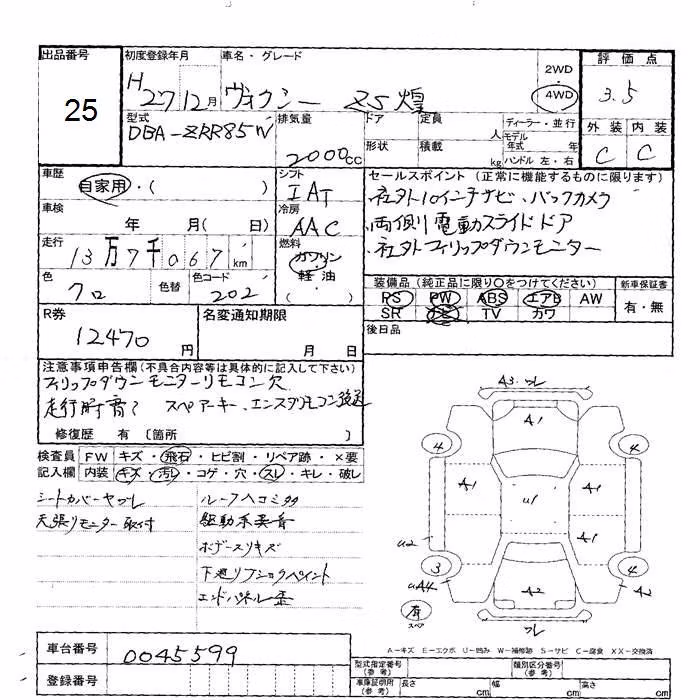 出品番号
25
初度登録年月
H
27年12月
車名・グレード
ヴォクシー ZS煌
2WD
・
4WD
評価点
3.5
外装 内装
C C
型式
DBA-ZRR85W
排気量
2000cc
ドア
定員
人
形状
積載
kg
ディーラー・並行
モデル
年式 年
ハンドル 左・右
車歴
自家用・( )
車検
年 月( 日)
走行
13万7千067km
色
クロ
色替
色コード
202
シフト
IAT
冷房
AAC
燃料
ガソリン
・
軽油
セールスポイント(正常に機能するものに限ります)
社外10インチナビ、バックカメラ
両側電動スライドドア
社外フィリップダウンモニター
装備品(純正品に限り○をつけてください)
PS PW ABS エアB AW
SR ナビ TV カワ
新車保証書
有・無
後日品
R券
12470円
名変通知期限
月 日
注意事項申告欄(不具合内容等は具体的に記入して下さい)
フィリップダウンモニターリモコン欠
走行時音? スペアーキー、エンスタリモコン後送
修復歴 有(箇所 )
検査員
記入欄
FW キズ・飛石・ヒビ割・リペア跡・×要
内装 キズ・汚れ・コゲ・穴・スレ・キレ・破レ
シートカバーヤブレ
天張りモニター取付
ルーフヘコミタタ
駆動系異音
ボデースリキズ
下廻リフショクペイント
エンドパネル歪
A3 ワレ
A1
4 4
A1 A1
U1
A1
U2
3 4
UA4 A2
A2
有
スペア
ワレ
A-キズ E-エクボ U-凹み W-補修跡 S-サビ C-腐食 XX-交換済
車台番号
0045599
登録番号
型式指定番号
(参考)
類別区分番号
(参考)
車庫証明用
(参考)
長さ cm 幅 cm 高さ cm